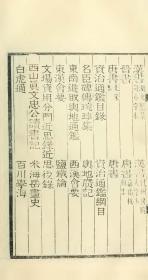 晉書 唐書
唐書
資治通鑑目錄 資治通鑑綱目
東南進取輿地通鑑 輿地廣記
名臣碑傳琬琰集 西漢會要
東漢會要 鹽鐵論
文場資用分門近思錄近思後錄
西山真文忠公讀書記 米海岳畫史
白虎通 百川學海